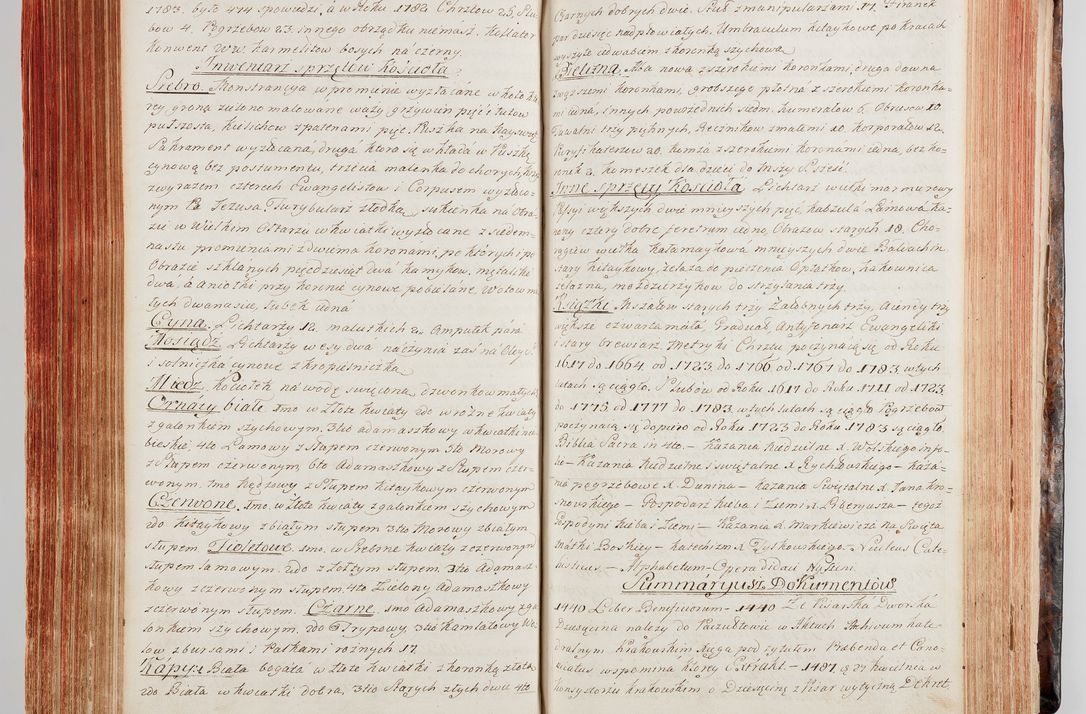 1783. było 474 spowiedzi, a w Roku 1782. Chrztow 25, Slu-
bow 4. Pogrzebow 23. innego obrządku niemasz. Kollator
konwent WW. karmelitow bosych na czerny
Inwentarz sprzętow kościoła
Srebro. Monstrancya w promienie wyzłacane w koło
rey grona zielono malowane waży grzywin pięć i łutow
pułszosta, kielichow z patenami pięć. Puszka na Nayswięt
Sakrament wyzłacana, druga ktora się wkłada w Puszkę
cynową bez postumentu, trzecia malenka do chorych,
z wyrazem czterech Ewangelistow i Corpusem wyzłaco-
nym Pa Jezusa. Turybularz z łodką, sukienka na Obra-
zie w Wielkim Ołtarzu w kwiatki wyzłacane z siedem-
nastu promieniami z dwiema koronami, po których i po
Obrazie szklannych pięćdziesiąt dwa kamykow, metaliki
dwa, a aniołki przy koronie cynowe pobielane. Wotow ma-
łych dwanascie, Tubek iedna
Cyna. Lichtarzy 12. malutkich 2. Ampułek para
Mosiądz. Lichtarzy wesy dwa naczynia zas na Oleye S.
i solniczka cynowe z kropielniczka
Miedz. Kociołek na wodę swięconą, dzwonkow małych
Ornaty białe. 1mo w złote kwiaty 2do w rożne kwiaty
z galonkiem szychowym, 3tio adamaszkowy w kwiatki nie-
bieskie, 4to Lamowy z słupem czerwonym 5to Morowy
z słupem czerwonym, 6to Adamaszkowy z słupem czer-
wonym. 7mo kędzowy z słupem kitaykowym czerwonym
Czerwone. 1mo. w złote kwiaty z galonkiem szychowym
2do kitaykowy z białym słupem 3tio Morowy z białym
słupem Fioletowe. 1mo. w Srebrne kwiaty z czerwonym
słupem lamowym. 2do z żołtym słupem 3tio Adamasz-
kowy z czerwonym słupem. 4to Zielony Adamaszkowy
z czerwonym słupem. Czarne. 1mo Adamaszkowy z ga-
lonkiem szychowym. 2do Trypowy, 3tio kamlotowy We-
low z bursami i Palkami rożnych 17
Kapy: Biała bogata w złote kwiatki z koronką złotą
2do Biała w kwiatki dobra, 3tio Starych złych dwie 4to
Czarnych dobrych dwie. Stuł z manipularzami 17. Firanek
par dziesięć nadpłowiałych. Umbraculum kitaykowe po kraiach
wyszyte iedwabiem z koronką szychową
Bielizna. Alba nowa z szerokiemi koronkami, druga dawna
z węzszemi koronkami, grobszego płotna z szerokiemi koronka-
mi iedna, innych powszednich siedm. Humerałow 6. Obrusow 10.
Tuwalni trzy pięknych, Ręcznikow z małemi 10. korporałow 12.
Puryfikaterzow 20. komża z szerokiemi koronami iedna, bez ko-
ronek 2. komeszek dla dzieci do Mszy S. szesć
Inne sprzęty kościoła. Lichtarz wielki marmurowy
Passyi większych dwie mnieyszych pięć, kabzula Lamowa ka-
zony cztery dobre feretrum iedno, Obrazow starych 18. Cho-
rągiew wielka kałamaykowa mnieyszych dwie Baldachim
stary kitaykowy, żelaza do pieczenia Opłatkow, hakownica
żelazna, możdzierzykow do strzylania trzy.
Książki. Mszałow starych trzy Załobnych trzy, Aiendy trzy
większe czwarta mała, Graduał, Antyfonarz Ewangeliki
i stary brewiarz. Metryki Chrztu poczynaią się od Roku
1617 do 1664. od 1723. do 1766 od 1767 do 1783. w tych
latach są ciągło. Slubow od Roku 1617 do Roku 1711 od 1723.
do 1775 od 1777 do 1783. w tych latach są ciągło Pogrzebow
poczynaią się dopiero od Roku 1723 do Roku 1783 są ciągło.
Biblia Sacra in 4to – Kazania Niedzielne X. Wolskiego in fo-
lio – Kazania Niedzielne i Swiętalne X. Rychłowskiego – kaza-
nia pogrzebowe X. Dunina – kazania Swiętalne X. Jana kro-
nowskiego – Gospodarz Nieba i Ziemi X. Liberyusza – tegoż
Gospodyni Nieba i Ziemi – Kazania X. Markiewicza na Swięta
Matki Boskiey – katechizm X. Tylkowskiego – Nucleus Cate-
– Alphabetum – Opera didaci Nysseni
Summaryusz Dokumentow
1440 Liber Beneficiorum – 1440 Ze Pisarska Dworska
Dziesięcina nalezy do Paczułtowic w Aktach Archivum kate-
dralnym krakowskim xięga pod tytułem Prebenda et Cano-
nicatus wspomina ktorey Extrakt – 1487 d. 27 kwietnia w
konsystorzu krakowskim o Dziesięcinę z Pisar wytyczną Dekret